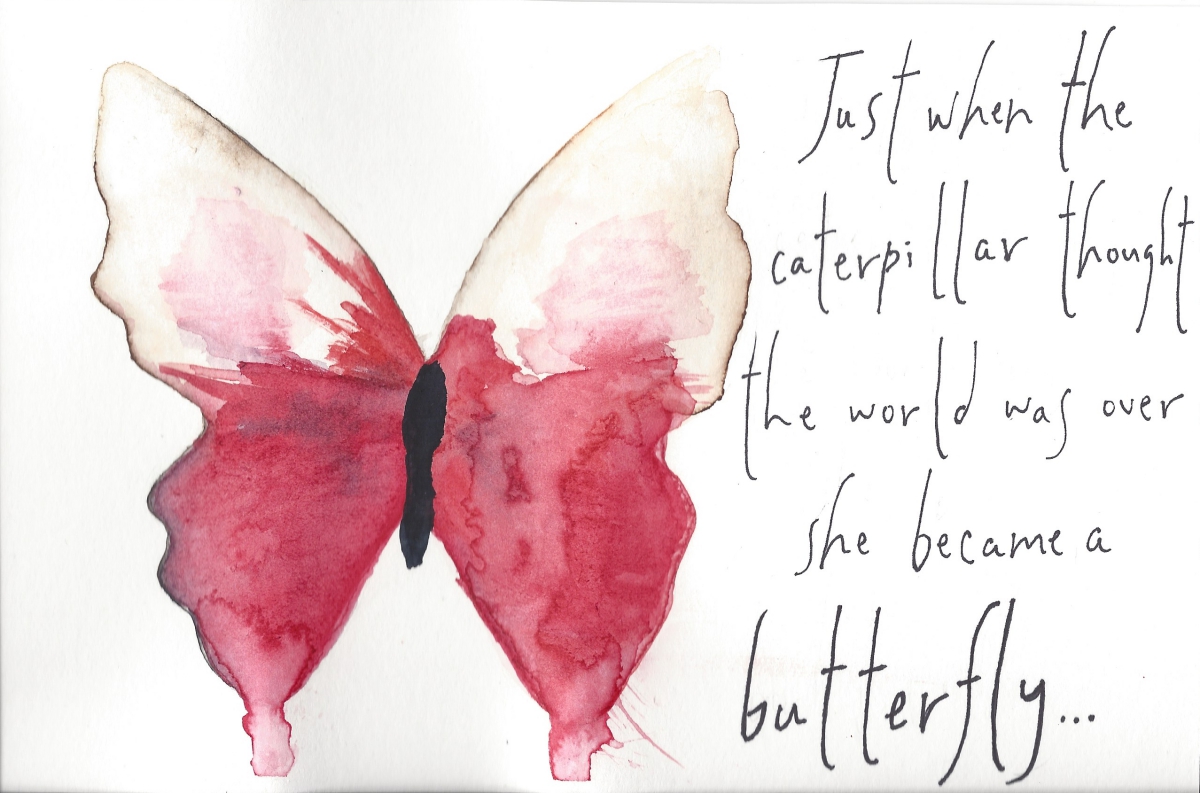 Just when the
caterpillar thought
the world was over
she became a
butterfly...